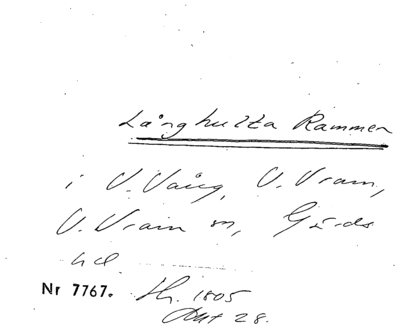 Långhulta Rammen
i V. Vång, V. Vram,
V. Vram sn, Gärds
hd
Nr 7767. Hr. 1805
Okt 28.